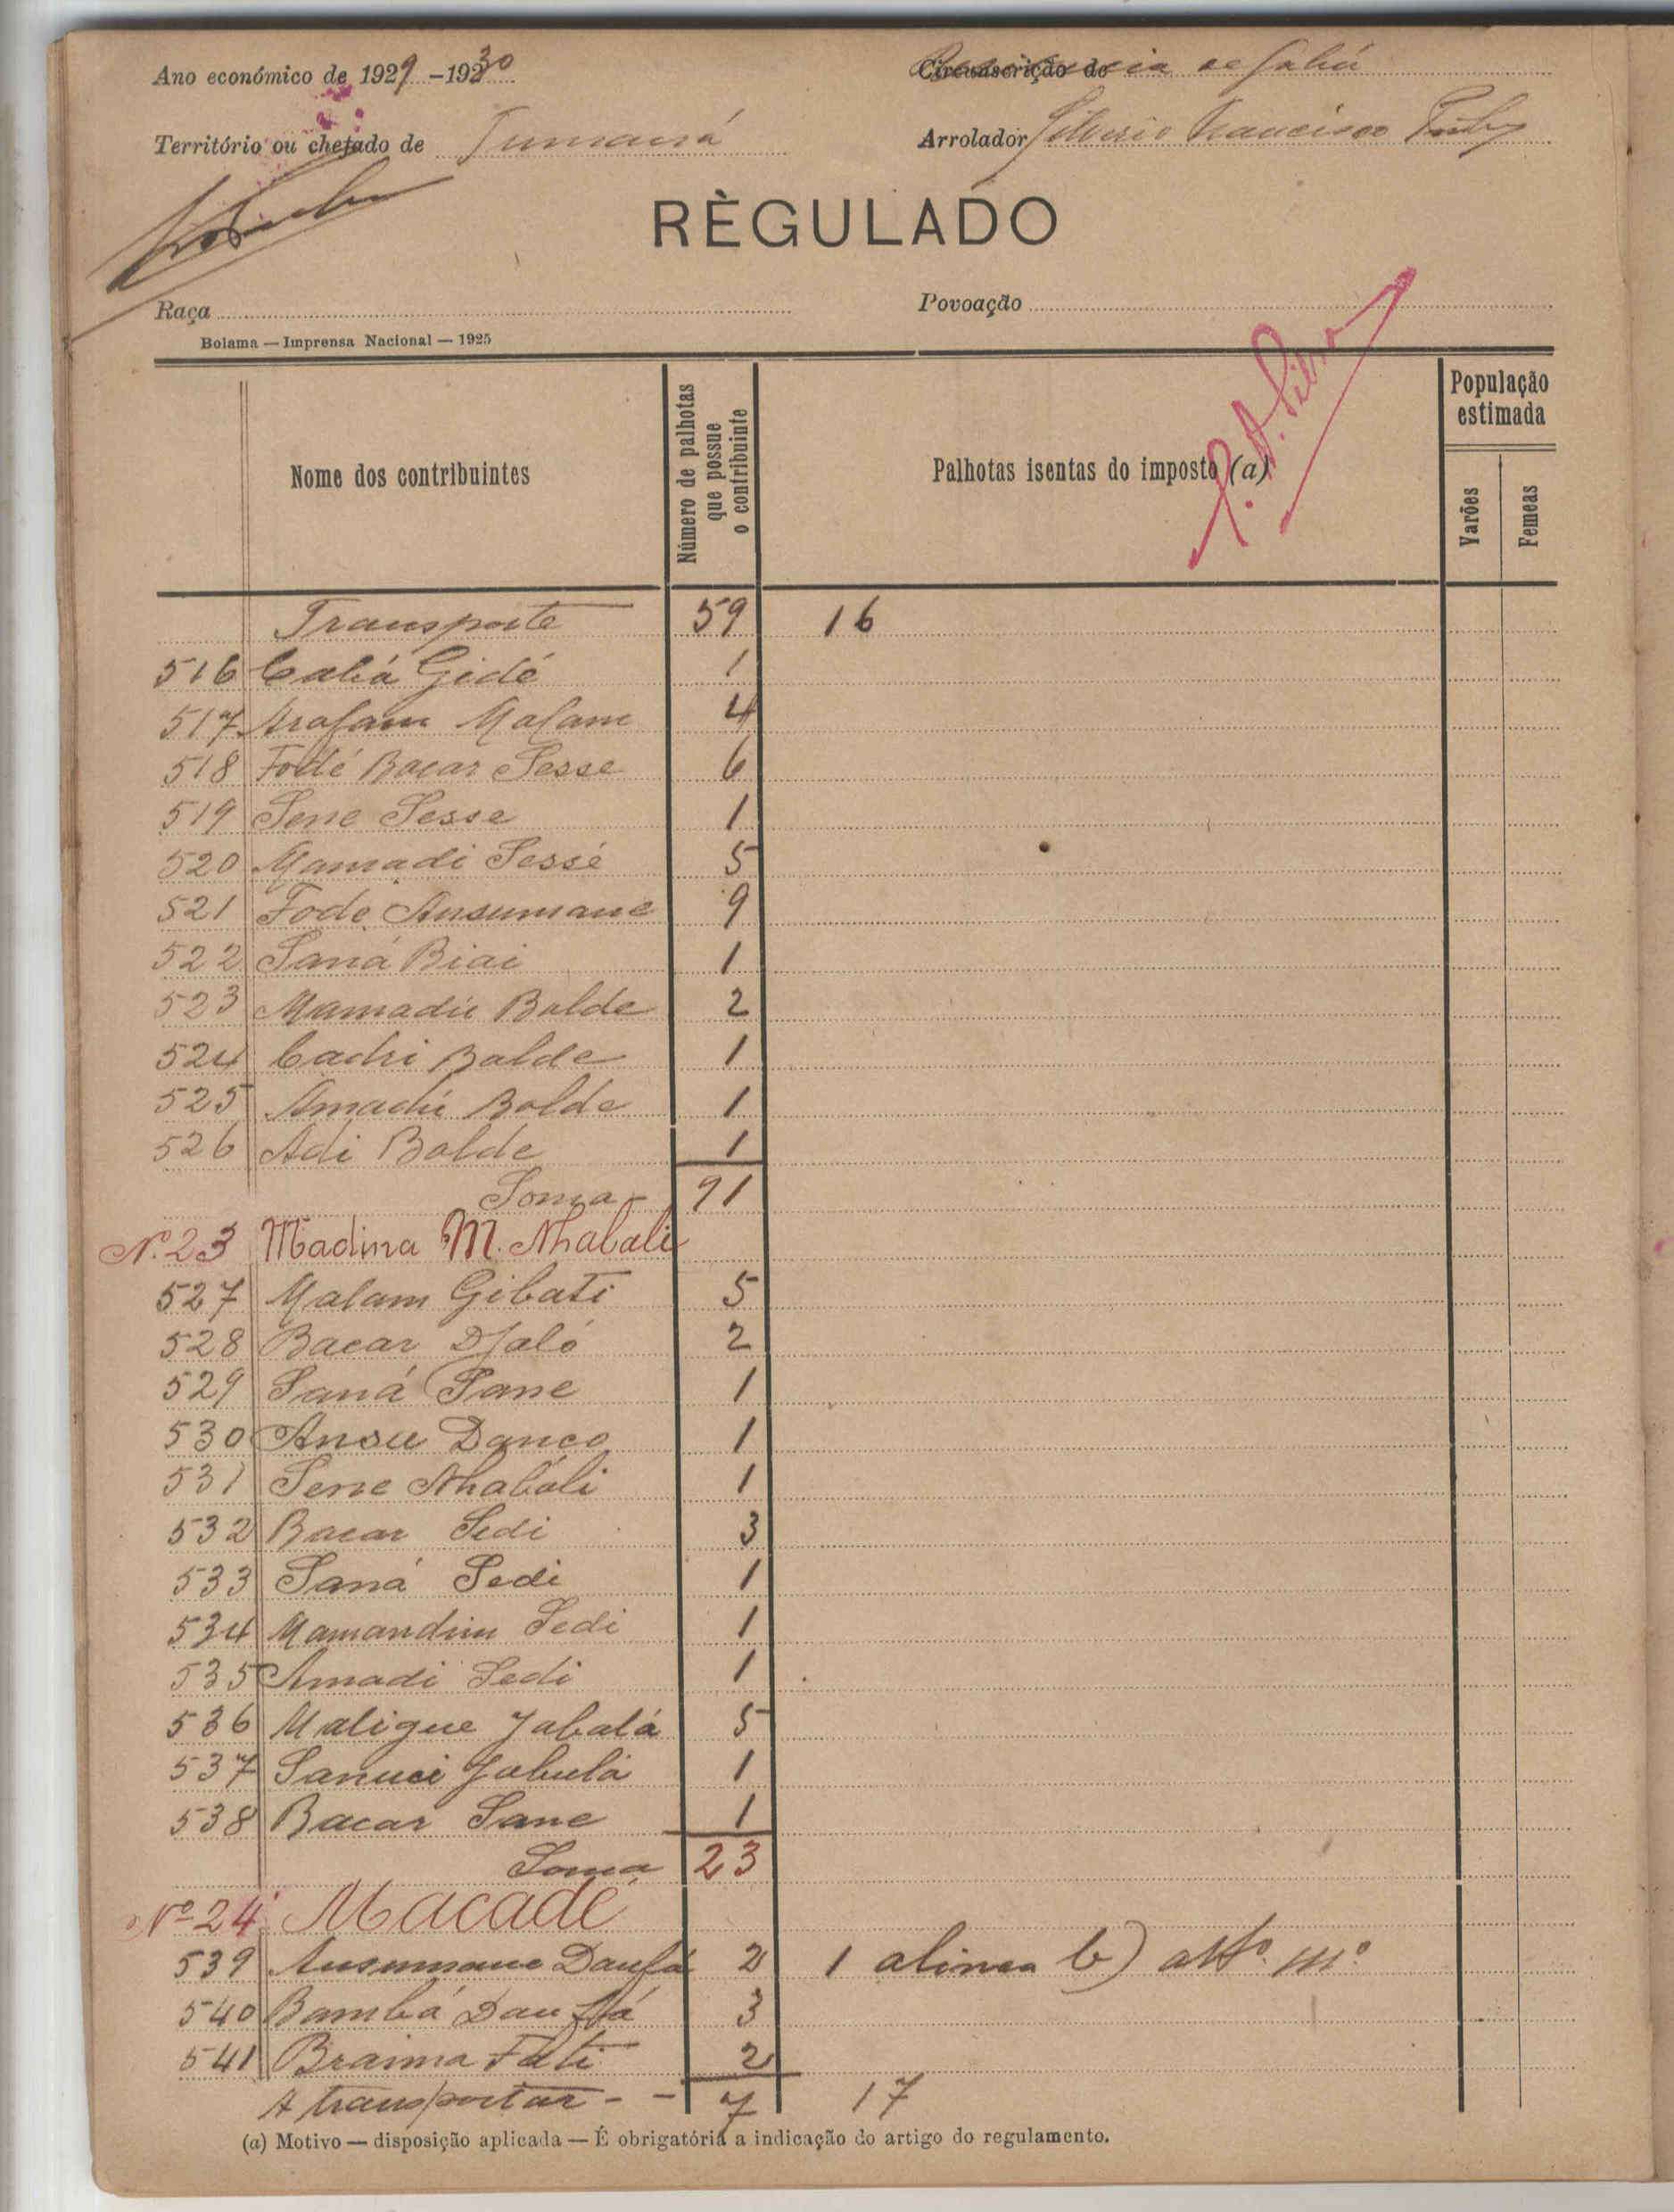 Ano económico de 1929 - 1930
Circunscrição de de Gabú
Território ou chefado de Tumaná
Arrolador Silverio Francisco
RÈGULADO
Raça
Povoação
Bolama — Imprensa Nacional — 1925
Nome dos contribuintes
Número de palhotas que possue o contribuinte
Palhotas isentas do imposto (a)
População estimada
Varões
Femeas
Transporte 59 16
516 Cabá Gidé 1
517 Arafam Malam 4
518 Fodé Bacar Sesse 6
519 Sene Sesse 1
520 Mamadi Sessé 5
521 Fode Ansumane 9
522 Saná Biai 1
523 Mamadú Balde 2
524 Cadri Balde 1
525 Amadú Balde 1
526 Adi Balde 1
Soma 91
Nº 23 Madina M. Nhabali
527 Malam Gibati 5
528 Bacar Djaló 2
529 Saná Sane 1
530 Ansu Danço 1
531 Sene Nhabáli 1
532 Bacar Sedi 3
533 Saná Sedi 1
534 Mamandim Sedi 1
535 Amadi Sedi 1
536 Maligue Jabalá 5
537 Sanuci Jabulá 1
538 Bacar Sane 1
Soma 23
Nº 24 Macadé
539 Ansumane Danfá 2 1 alinea b) artº. mº
540 Bambá Danfá 3
541 Braima Fati 2
A transportar - - 7 17
(a) Motivo — disposição aplicada — É obrigatória a indicação do artigo do regulamento.